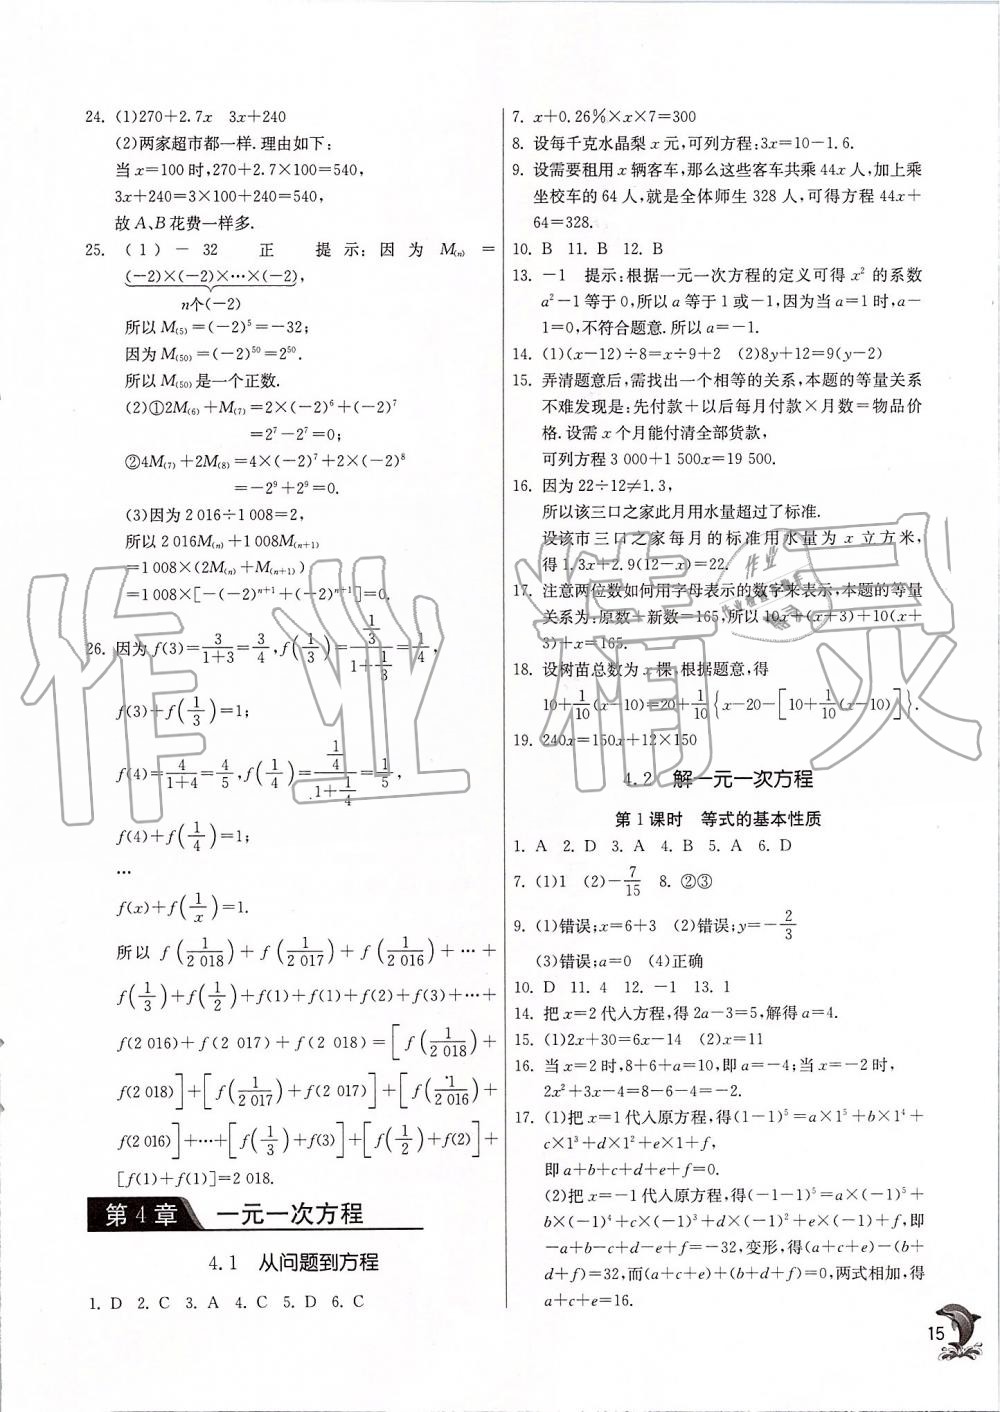 24. (1)270+2.7x 3x+240
(2)两家超市都一样.理由如下:
当 x=100 时,270+2.7×100=540,
3x+240=3×100+240=540,
故 A、B 花费一样多.
25. (1)-32 正 提示:因为 M₍ₙ₎=
(-2)×(-2)×⋯×(-2),
n个(-2)
所以 M₍₅₎=(-2)⁵=-32;
因为 M₍₅₀₎=(-2)⁵⁰=2⁵⁰.
所以 M₍₅₀₎是一个正数.
(2)①2M₍₆₎+M₍₇₎=2×(-2)⁶+(-2)⁷
=2⁷-2⁷=0;
②4M₍₇₎+2M₍₈₎=4×(-2)⁷+2×(-2)⁸
=-2⁹+2⁹=0.
(3)因为 2 016÷1 008=2,
所以 2 016M₍ₙ₎+1 008M₍ₙ₊₁₎
=1 008×(2M₍ₙ₎+M₍ₙ₊₁₎)
=1 008×[-(-2)ⁿ⁺¹+(-2)ⁿ⁺¹]=0.
26. 因为 f(3)=3/(1+3)=3/4,f(1/3)=(1/3)/(1+1/3)=1/4,
f(3)+f(1/3)=1;
f(4)=4/(1+4)=4/5,f(1/4)=(1/4)/(1+1/4)=1/5,
f(4)+f(1/4)=1;
⋯
f(x)+f(1/x)=1.
所以 f(1/2 018)+f(1/2 017)+f(1/2 016)+⋯+
f(1/3)+f(1/2)+f(1)+f(1)+f(2)+f(3)+⋯+
f(2 016)+f(2 017)+f(2 018)=[f(1/2 018)+
f(2 018)]+[f(1/2 017)+f(2 017)]+[f(1/2 016)+
f(2 016)]+⋯+[f(1/3)+f(3)]+[f(1/2)+f(2)]+
[f(1)+f(1)]=2 018.
第4章 一元一次方程
4.1 从问题到方程
1. D 2. C 3. A 4. C 5. D 6. C
7. x+0.26%×x×7=300
8. 设每千克水晶梨 x 元,可列方程:3x=10-1.6.
9. 设需要租用 x 辆客车,那么这些客车共乘 44x 人,加上乘
坐校车的 64 人,就是全体师生 328 人,可得方程 44x+
64=328.
10. B 11. B 12. B
13. -1 提示:根据一元一次方程的定义可得 x² 的系数
a²-1 等于 0,所以 a 等于 1 或-1,因为当 a=1 时,a-
1=0,不符合题意.所以 a=-1.
14. (1)(x-12)÷8=x÷9+2 (2)8y+12=9(y-2)
15. 弄清题意后,需找出一个相等的关系,本题的等量关系
不难发现是:先付款+以后每月付款×月数=物品价
格.设需 x 个月能付清全部货款,
可列方程 3 000+1 500x=19 500.
16. 因为 22÷12≠1.3,
所以该三口之家此月用水量超过了标准.
设该市三口之家每月的标准用水量为 x 立方米,
得 1.3x+2.9(12-x)=22.
17. 注意两位数如何用字母表示的数字来表示,本题的等量
关系为:原数+新数=165,所以 10x+(x+3)+10(x+
3)+x=165.
18. 设树苗总数为 x 棵,根据题意,得
10+1/10(x-10)=20+1/10{x-20-[10+1/10(x-10)]}.
19. 240x=150x+12×150
4.2 解一元一次方程
第1课时 等式的基本性质
1. A 2. D 3. A 4. B 5. A 6. D
7. (1)1 (2)-7/15 8. ②③
9. (1)错误;x=6+3 (2)错误;y=-2/3
(3)错误;a=0 (4)正确
10. D 11. 4 12. -1 13. 1
14. 把 x=2 代入方程,得 2a-3=5,解得 a=4.
15. (1)2x+30=6x-14 (2)x=11
16. 当 x=2 时,8+6+a=10,即 a=-4;当 x=-2 时,
2x²+3x-4=8-6-4=-2.
17. (1)把 x=1 代入原方程,得(1-1)⁵=a×1⁵+b×1⁴+
c×1³+d×1²+e×1+f,
即 a+b+c+d+e+f=0.
(2)把 x=-1 代入原方程,得(-1-1)⁵=a×(-1)⁵+
b×(-1)⁴+c×(-1)³+d×(-1)²+e×(-1)+f,即
-a+b-c+d-e+f=-32,变形,得(a+c+e)-(b+
d+f)=32,而(a+c+e)+(b+d+f)=0,两式相加,得
a+c+e=16.
15
作业精灵